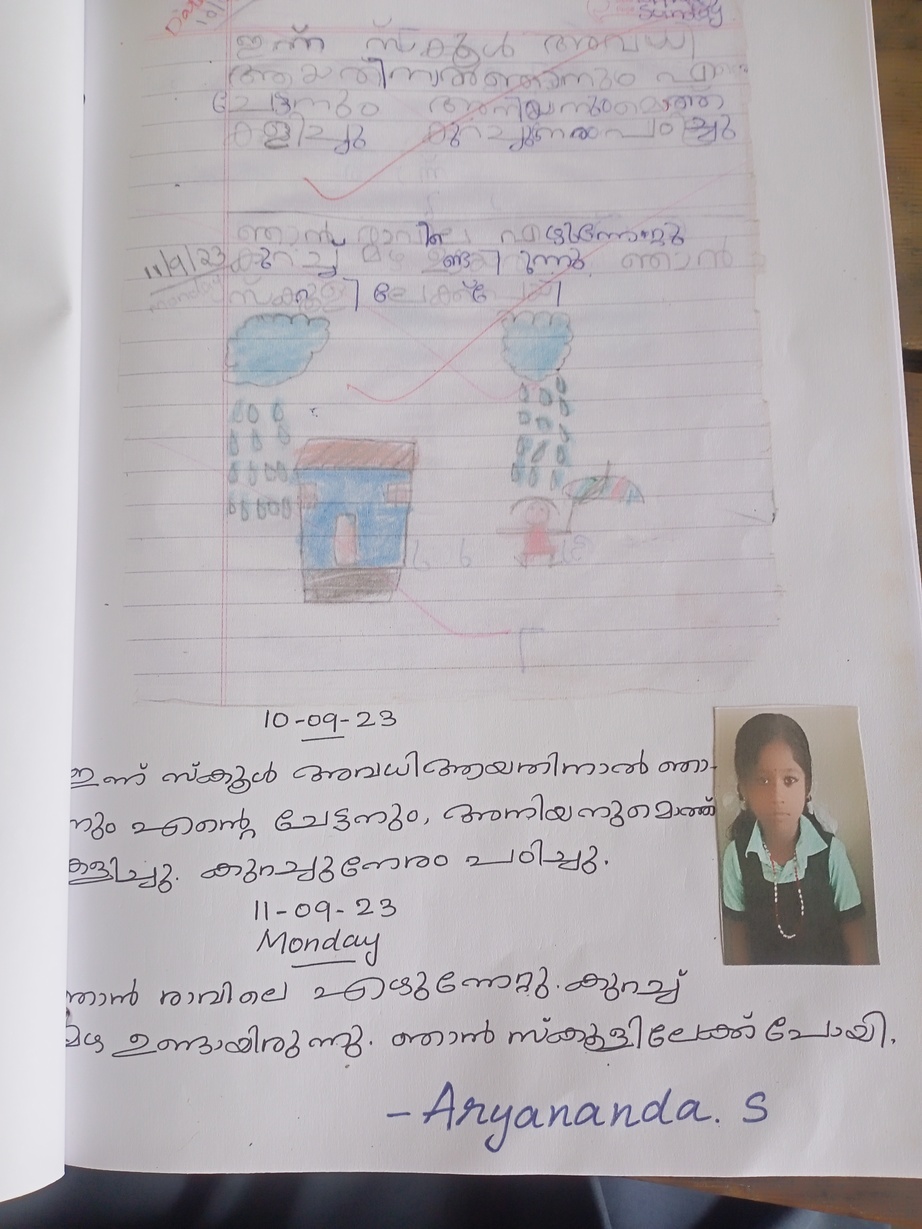 Date
10/
Sunday
ഇന്ന് സ്കൂൾ അവധി
ആയതിനാൽ ഞാനും എന്റെ
ചേട്ടനും അനിയനുമൊത്ത
കളിച്ചു കുറച്ചുനേരം പഠിച്ചു
ഞാൻ രാവിലെ എഴുന്നേറ്റു
11/9/23 കുറച്ച് മഴ ഉണ്ടായിരുന്നു ഞാൻ
monday സ്കൂളിലേക്ക് പോയി
10-09-23
ഇന്ന് സ്കൂൾ അവധി ആയതിനാൽ ഞാ-
നും എന്റെ ചേട്ടനും, അനിയനുമൊത്ത്
കളിച്ചു. കുറച്ചുനേരം പഠിച്ചു.
11-09-23
Monday
ഞാൻ രാവിലെ എഴുന്നേറ്റു. കുറച്ച്
മഴ ഉണ്ടായിരുന്നു. ഞാൻ സ്കൂളിലേക്ക് പോയി.
- Aryananda. S